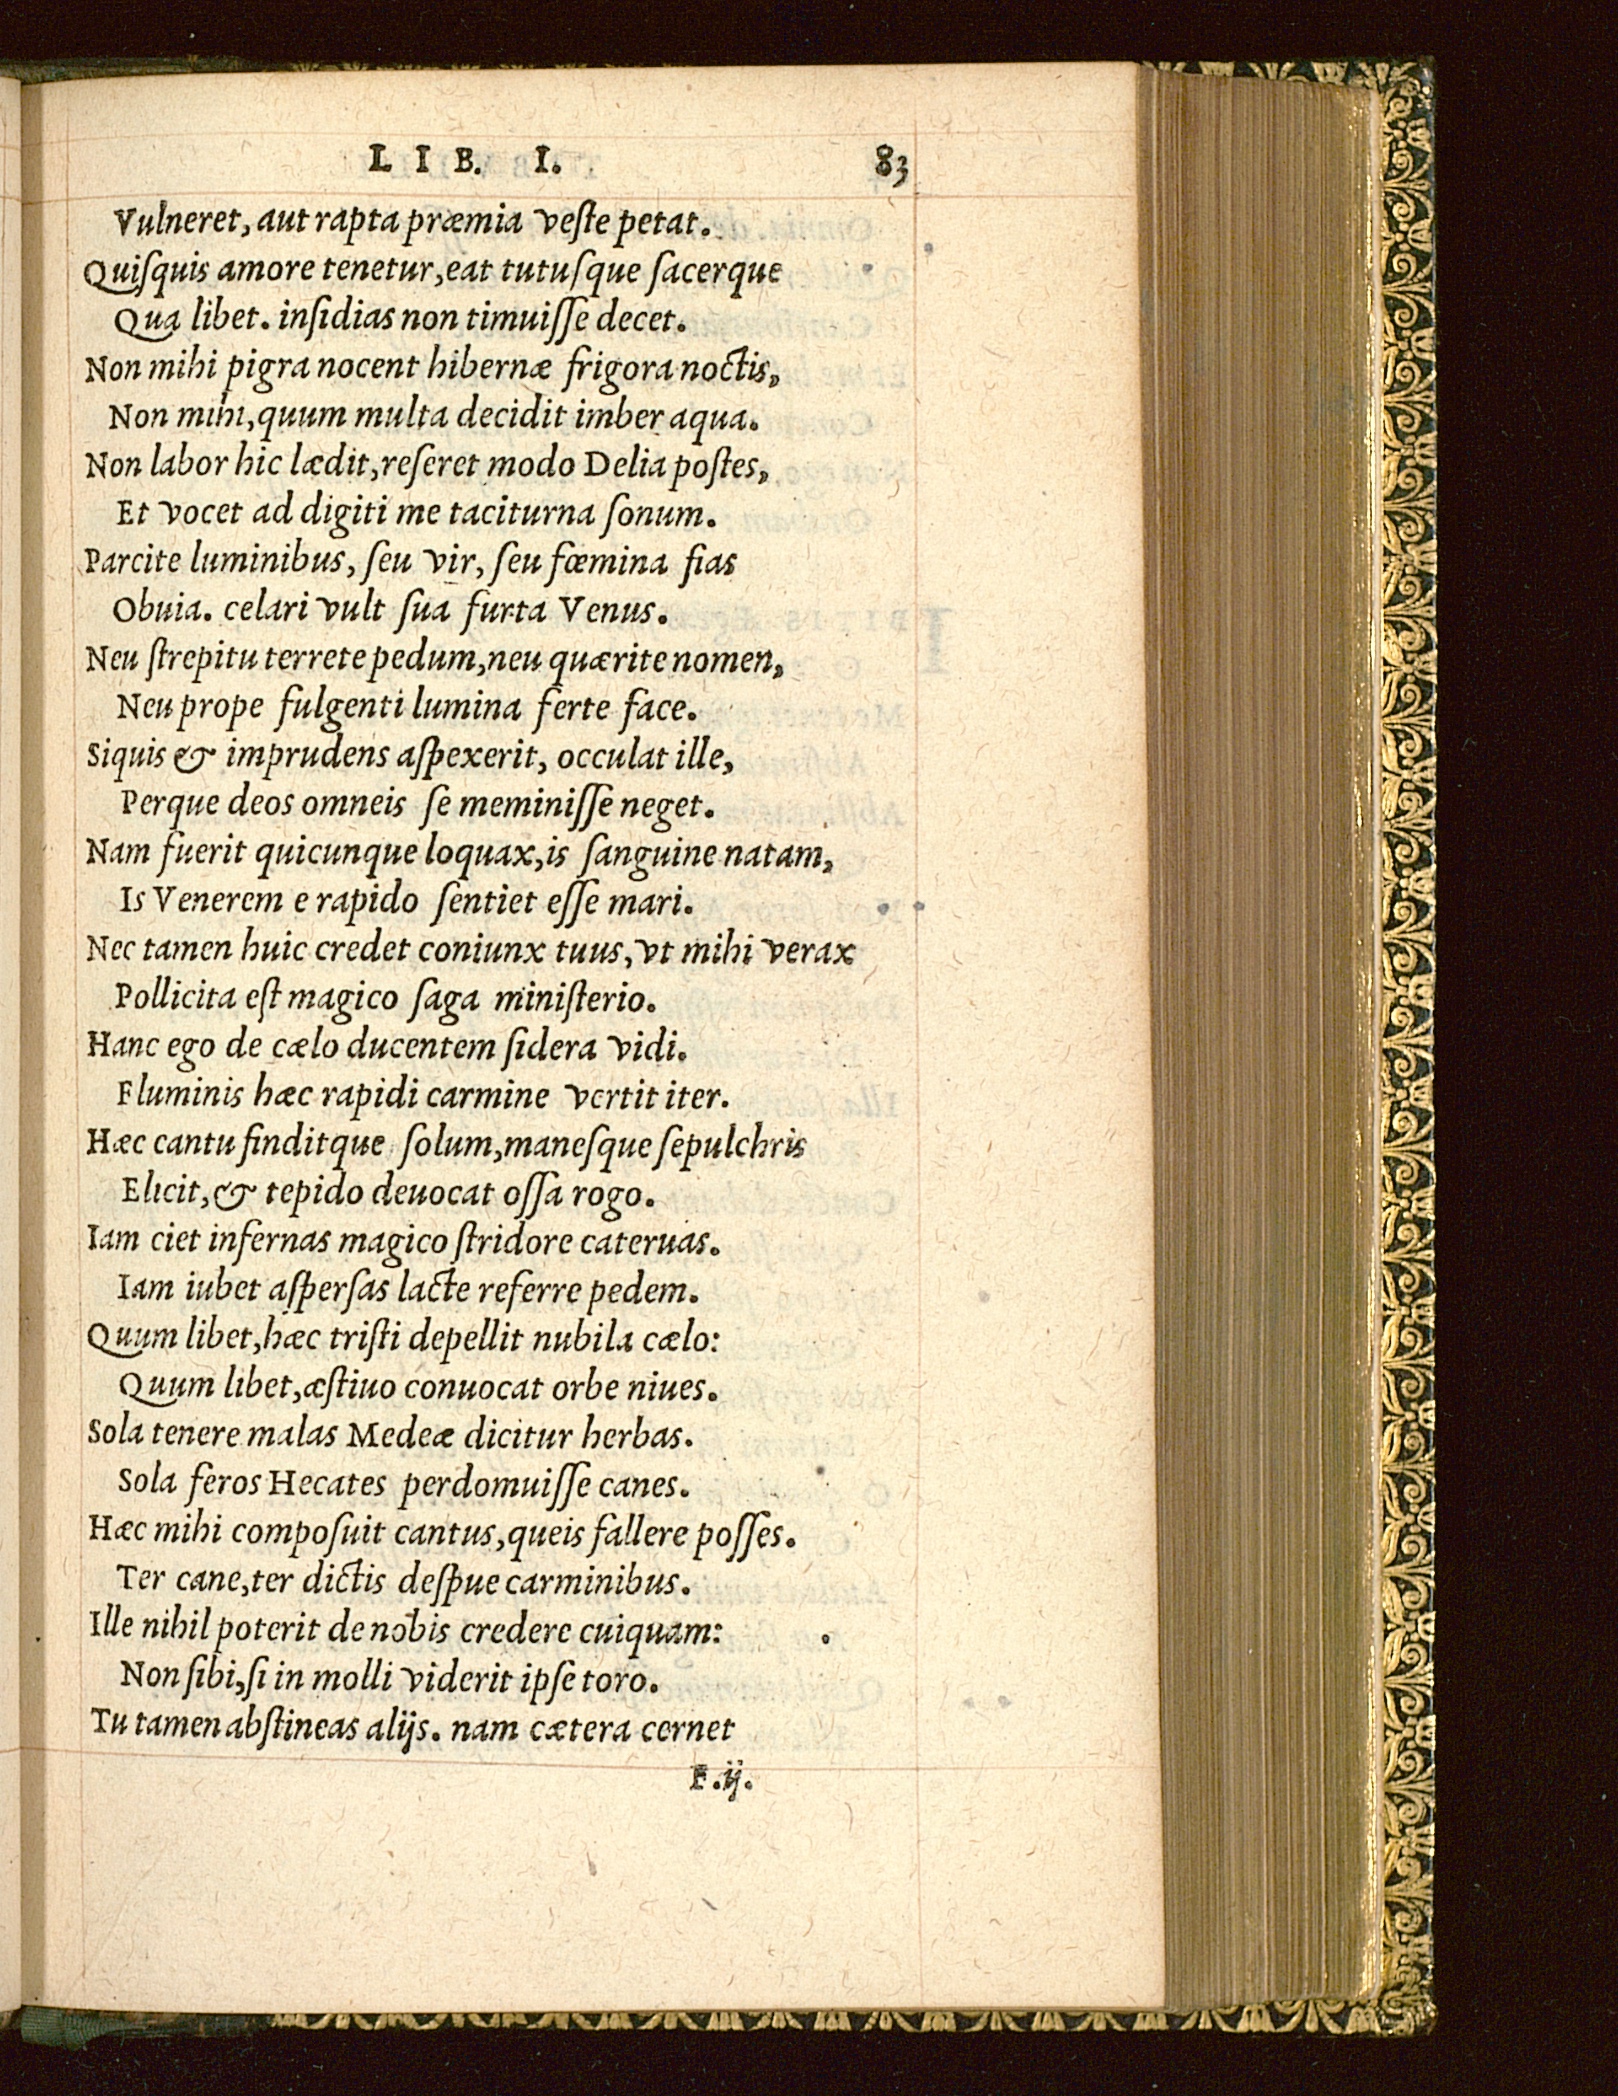 LIB. I. 83
Vulneret, aut rapta præmia veſte petat.
Quiſquis amore tenetur, eat tutuſque ſacerque
Qua libet. inſidias non timuiſſe decet.
Non mihi pigra nocent hibernæ frigora noctis,
Non mihi, quum multa decidit imber aqua.
Non labor hic lædit, reſeret modo Delia poſtes,
Et vocet ad digiti me taciturna ſonum.
Parcite luminibus, ſeu vir, ſeu fœmina fias
Obuia. celari vult ſua furta Venus.
Neu ſtrepitu terrete pedum, neu quærite nomen,
Neu prope fulgenti lumina ferte face.
Siquis & imprudens aſpexerit, occulat ille,
Perque deos omneis ſe meminiſſe neget.
Nam fuerit quicunque loquax, is ſanguine natam,
Is Venerem e rapido ſentiet eſſe mari.
Nec tamen huic credet coniunx tuus, vt mihi verax
Pollicita eſt magico ſaga miniſterio.
Hanc ego de cælo ducentem ſidera vidi.
Fluminis hæc rapidi carmine vertit iter.
Hæc cantu finditque ſolum, maneſque ſepulchris
Elicit, & tepido deuocat oſſa rogo.
Iam ciet infernas magico ſtridore cateruas.
Iam iubet aſperſas lacte referre pedem.
Quum libet, hæc triſti depellit nubila cælo:
Quum libet, æſtiuo conuocat orbe niues.
Sola tenere malas Medeæ dicitur herbas.
Sola feros Hecates perdomuiſſe canes.
Hæc mihi compoſuit cantus, queis fallere poſſes.
Ter cane, ter dictis deſpue carminibus.
Ille nihil poterit de nobis credere cuiquam:
Non ſibi, ſi in molli viderit ipſe toro.
Tu tamen abſtineas alijs. nam cætera cernet
F.ij.